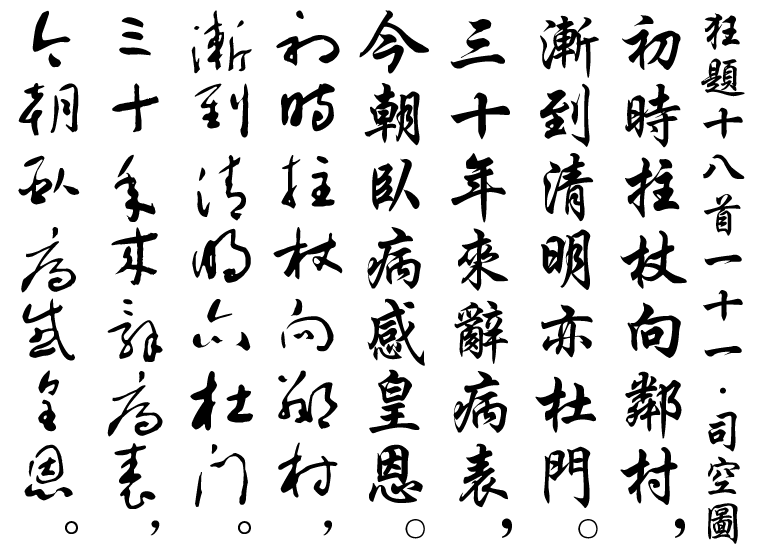 狂題十八首一十一·司空圖
初時拄杖向鄰村，
漸到清明亦杜門。
三十年來辭病表，
今朝臥病感皇恩。
初時拄杖向鄰村，
漸到清明亦杜門。
三十年來辭病表，
今朝臥病感皇恩。